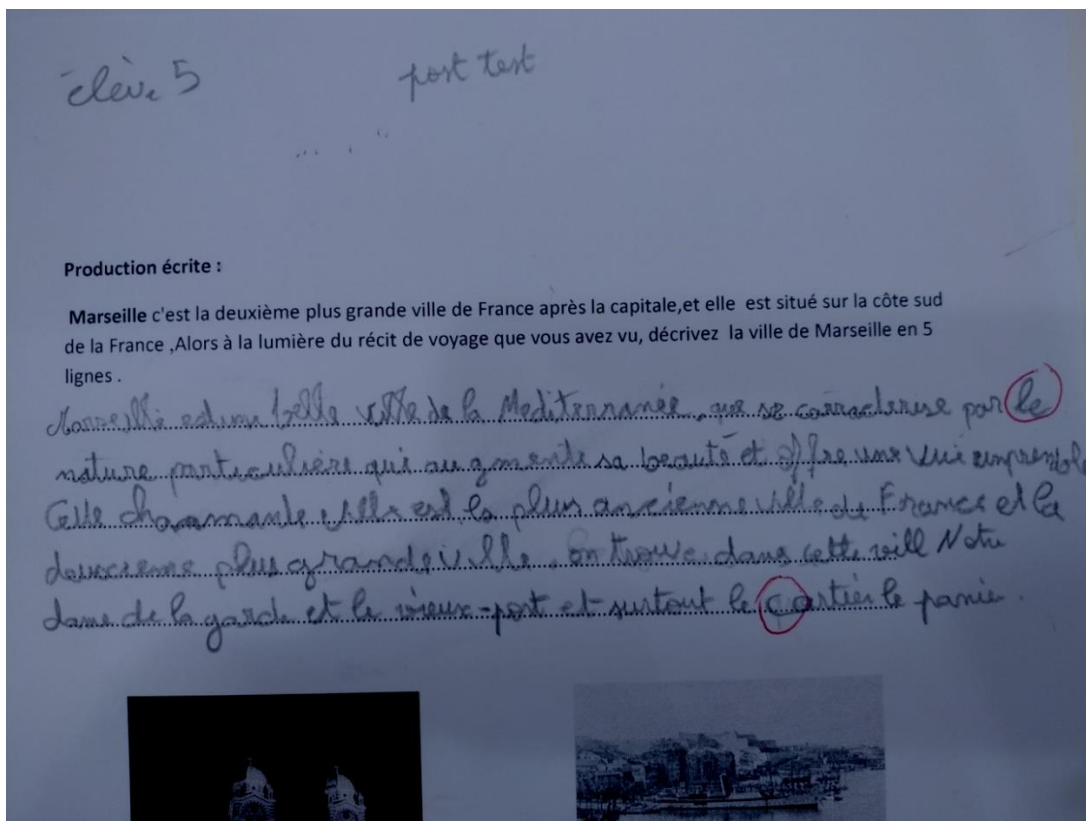 élève 5 post test
Production écrite :
Marseille c'est la deuxième plus grande ville de France après la capitale,et elle est situé sur la côte sud
de la France ,Alors à la lumière du récit de voyage que vous avez vu, décrivez la ville de Marseille en 5
lignes .
Marseille est une belle ville de la Mediterranée, que se par le
nature particulière qui augmente sa beauté et offre une vue
Cette charmante ville est la plus ancienne ville de France et la
deuxieme plus grande ville. on trouve dans cette vill Notre
dame de la garde et le vieux-port et surtout le cartier le panie.